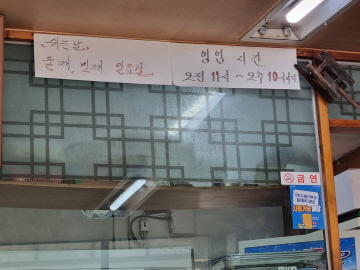 쉬는날
둘째, 넷째 일요일
영업 시간
오전 11시 ~ 오후 10시까지
금연